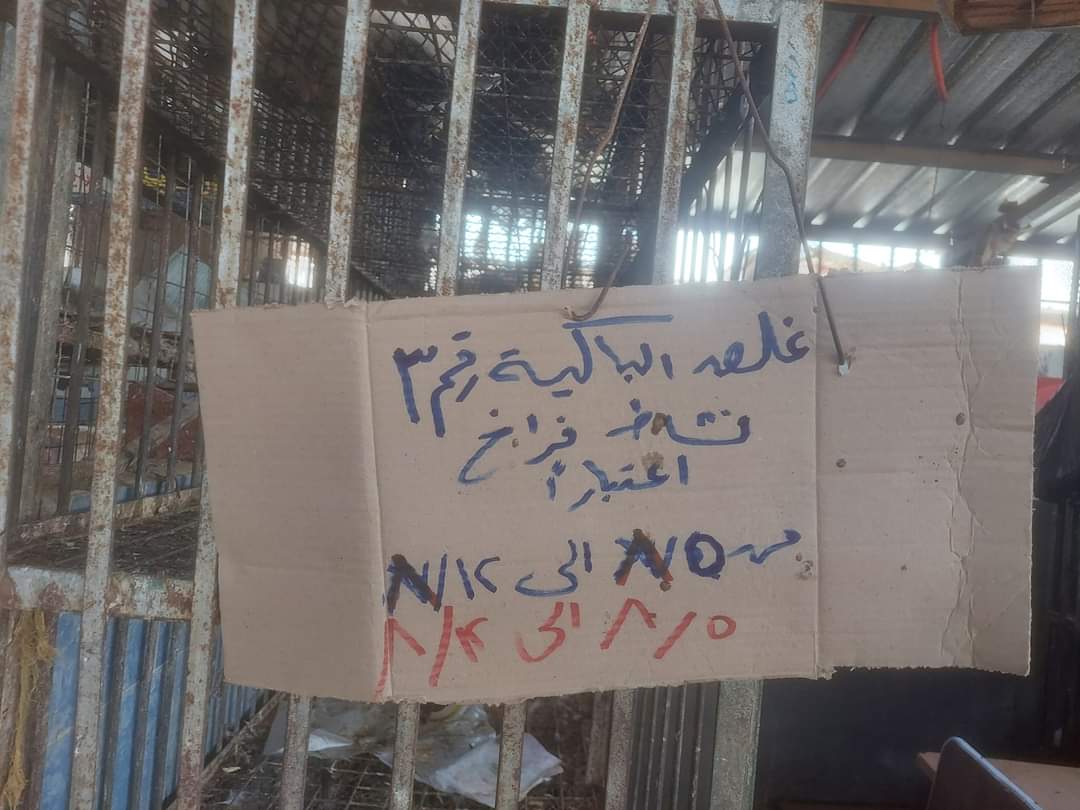 غلق الباكية رقم ٣
نشاط فراخ
اعتباراً
من ٨/٥ الى ٨/١٢
٨/٥ الى ٨/٢